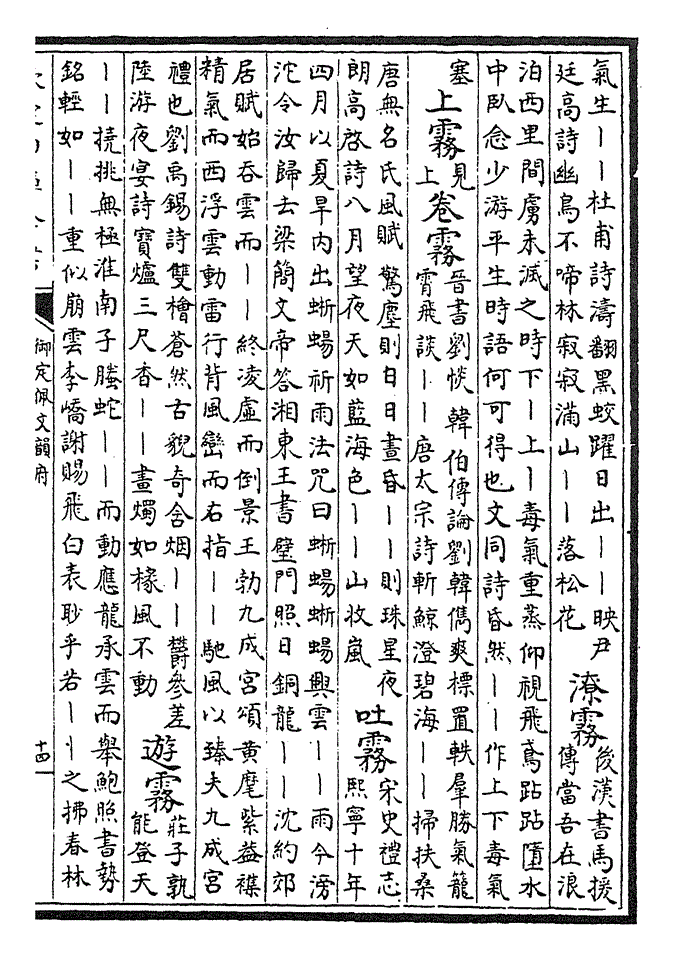 氣生丨丨杜甫詩濤翻黑蛟躍日出丨丨映尹
廷高詩幽鳥不啼林寂寂滿山丨丨落松花
潦霧
後漢書馬援
傳當吾在浪
泊西里間虜未滅之時下丨上丨毒氣重蒸仰視飛鳶跕跕墮水
中臥念少游平生時語何可得也文同詩昏然丨丨作上下毒氣
塞
上霧
見
上
卷霧
晉書劉惔韓伯傳論劉韓儁爽標置軼羣勝氣籠
霄飛談丨丨唐太宗詩斬鯨澄碧海丨丨掃扶桑
唐無名氏風賦驚塵則白日晝昏丨丨則珠星夜
朗高啓詩八月望夜天如藍海色丨丨山收嵐
吐霧
宋史禮志
熙寧十年
四月以夏旱内出蜥蜴祈雨法咒曰蜥蜴蜥蜴興雲丨丨雨今滂
沱令汝歸去梁簡文帝答湘東王書璧門照日銅龍丨丨沈約郊
居賦始吞雲而丨丨終淩虛而倒景王勃九成宮頌黃麾紫益襟
精氣而西浮雲動雷行背風巒而右指丨丨馳風以臻夫九成宮
禮也劉禹錫詩雙檜蒼然古貌奇含烟丨丨鬱參差
陸游夜宴詩寶爐三尺香丨丨畫燭如椽風不動
遊霧
莊子孰
能登天
丨丨撓挑無極淮南子螣蛇丨丨而動應龍承雲而舉鮑照書勢
銘輕如丨丨重似崩雲李嶠謝賜飛白表眇乎若丨丨之拂春林
御定佩文韻府
十四